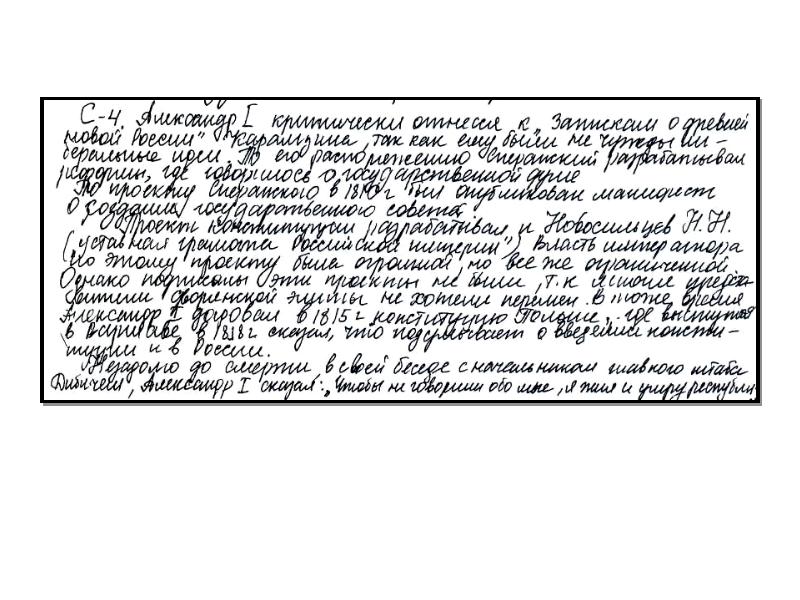 С-4. Александр I критически отнесся к „Запискам о древней
и новой России" Карамзина, так как ему были не чужды ли-
беральные идеи. По его распоряжению Сперанский разрабатывал
реформы, где говорилось о государственной думе
По проекту Сперанского в 1810 г был опубликован манифест
о создании государственного совета.
Проект конституции разрабатывал и Новосильцев Н.Н.
(„уставная грамота Российской империи") Власть императора
по этому проекту была огромной, но все же ограниченной.
Однако подписаны эти проекты не были, т.к многие предста-
вители дворянской элиты не хотели перемен. В тоже время
Александр I даровал в 1815 г конституцию Польше, где выступая
в Варшаве в 1818 г сказал, что подумывает о введении консти-
туции и в России.
Незадолго до смерти, в своей беседе с начальником главного штаба
Дибичем, Александр I сказал: „Чтобы не говорили обо мне, я жил и умру республи